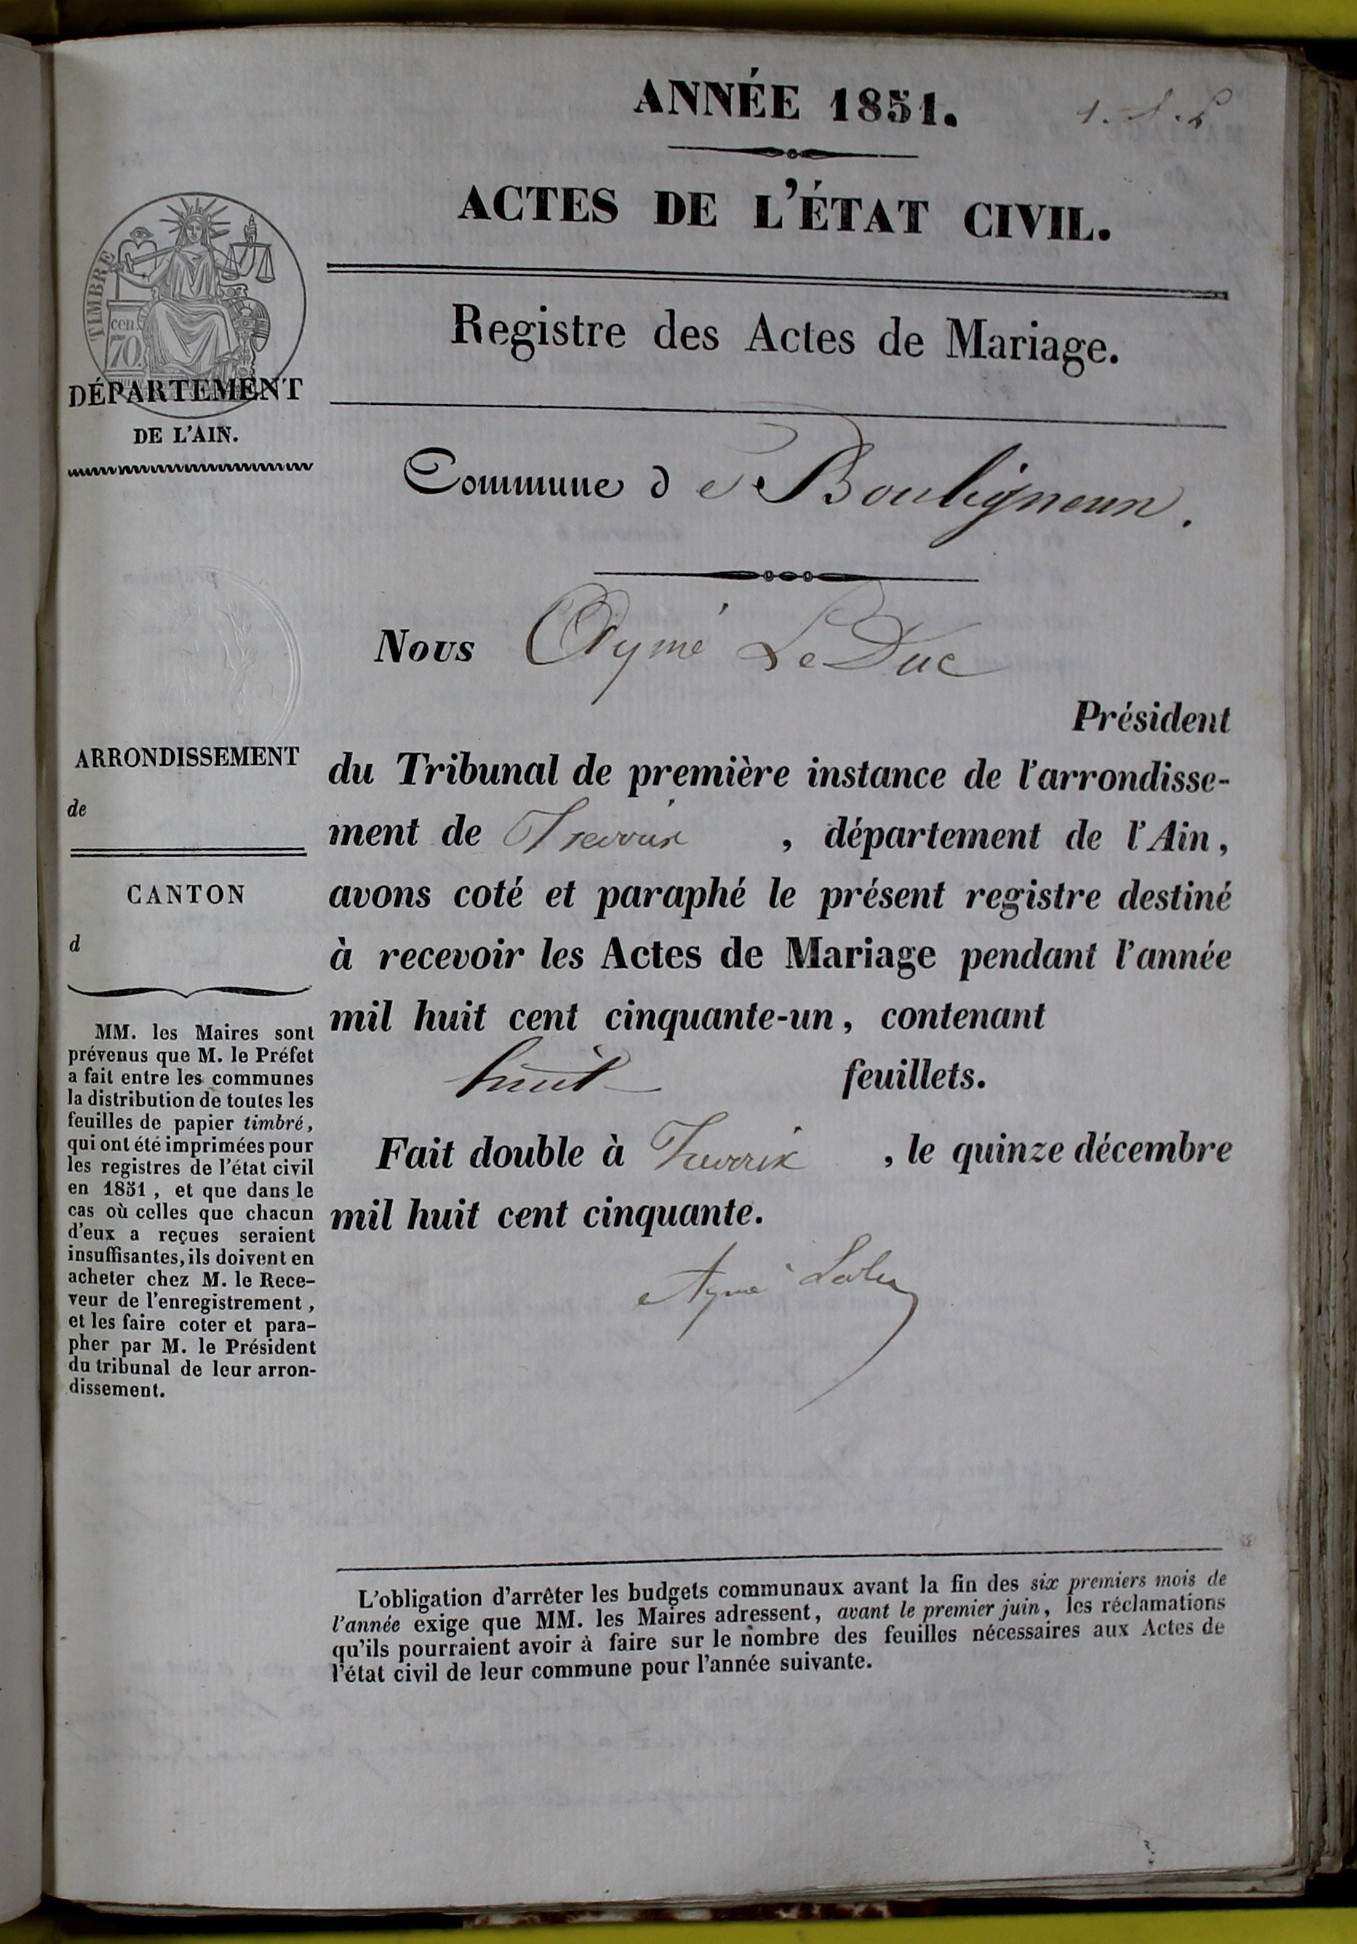 ANNÉE 1851.
ACTES DE L'ÉTAT CIVIL.
TIMBRE
cen.
70.
DÉPARTEMENT
DE L'AIN.
Registre des Actes de Mariage.
Commune de Bouligneux.
Nous Aymé Le Duc
Président
ARRONDISSEMENT
de
CANTON
d
du Tribunal de première instance de l'arrondisse-
ment de Trévoux, département de l'Ain,
avons coté et paraphé le présent registre destiné
à recevoir les Actes de Mariage pendant l'année
mil huit cent cinquante-un, contenant
huit feuillets.
Fait double à Trévoux, le quinze décembre
mil huit cent cinquante.
Aymé
MM. les Maires sont
prévenus que M. le Préfet
a fait entre les communes
la distribution de toutes les
feuilles de papier timbré,
qui ont été imprimées pour
les registres de l'état civil
en 1851, et que dans le
cas où celles que chacun
d'eux a reçues seraient
insuffisantes, ils doivent en
acheter chez M. le Rece-
veur de l'enregistrement,
et les faire coter et para-
pher par M. le Président
du tribunal de leur arron-
dissement.
L'obligation d'arrêter les budgets communaux avant la fin des six premiers mois de
l'année exige que MM. les Maires adressent, avant le premier juin, les réclamations
qu'ils pourraient avoir à faire sur le nombre des feuilles nécessaires aux Actes de
l'état civil de leur commune pour l'année suivante.